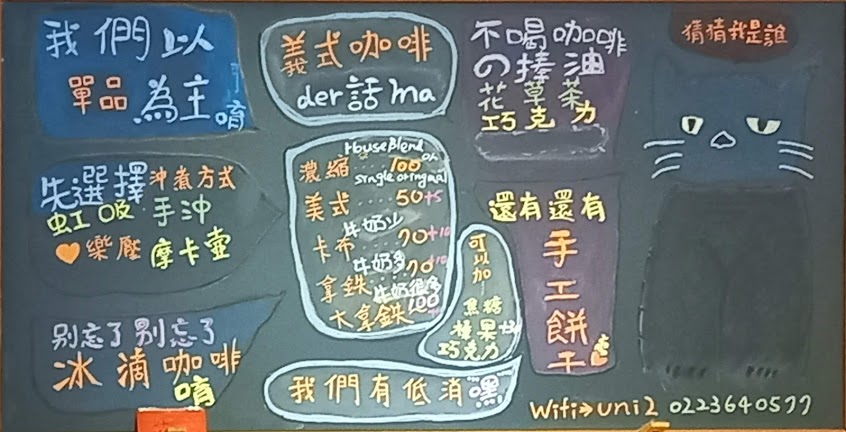 我們以
單品為主唷
先選擇沖煮方式
虹吸手沖
樂壓摩卡壺
別忘了別忘了
冰滴咖啡
唷
義式咖啡
der話ma
House Blend
濃縮 100
single original
美式 50+5
牛奶少
卡布 70+10
牛奶多
拿鐵 70+10
牛奶很多
大拿鐵 100
可以加
焦糖
榛果
巧克力
我們有低消嘿
不喝咖啡
の捧油
花草茶
巧克力
還有還有
手工餅干
猜猜我是誰
Wifi→uni2 0223640577